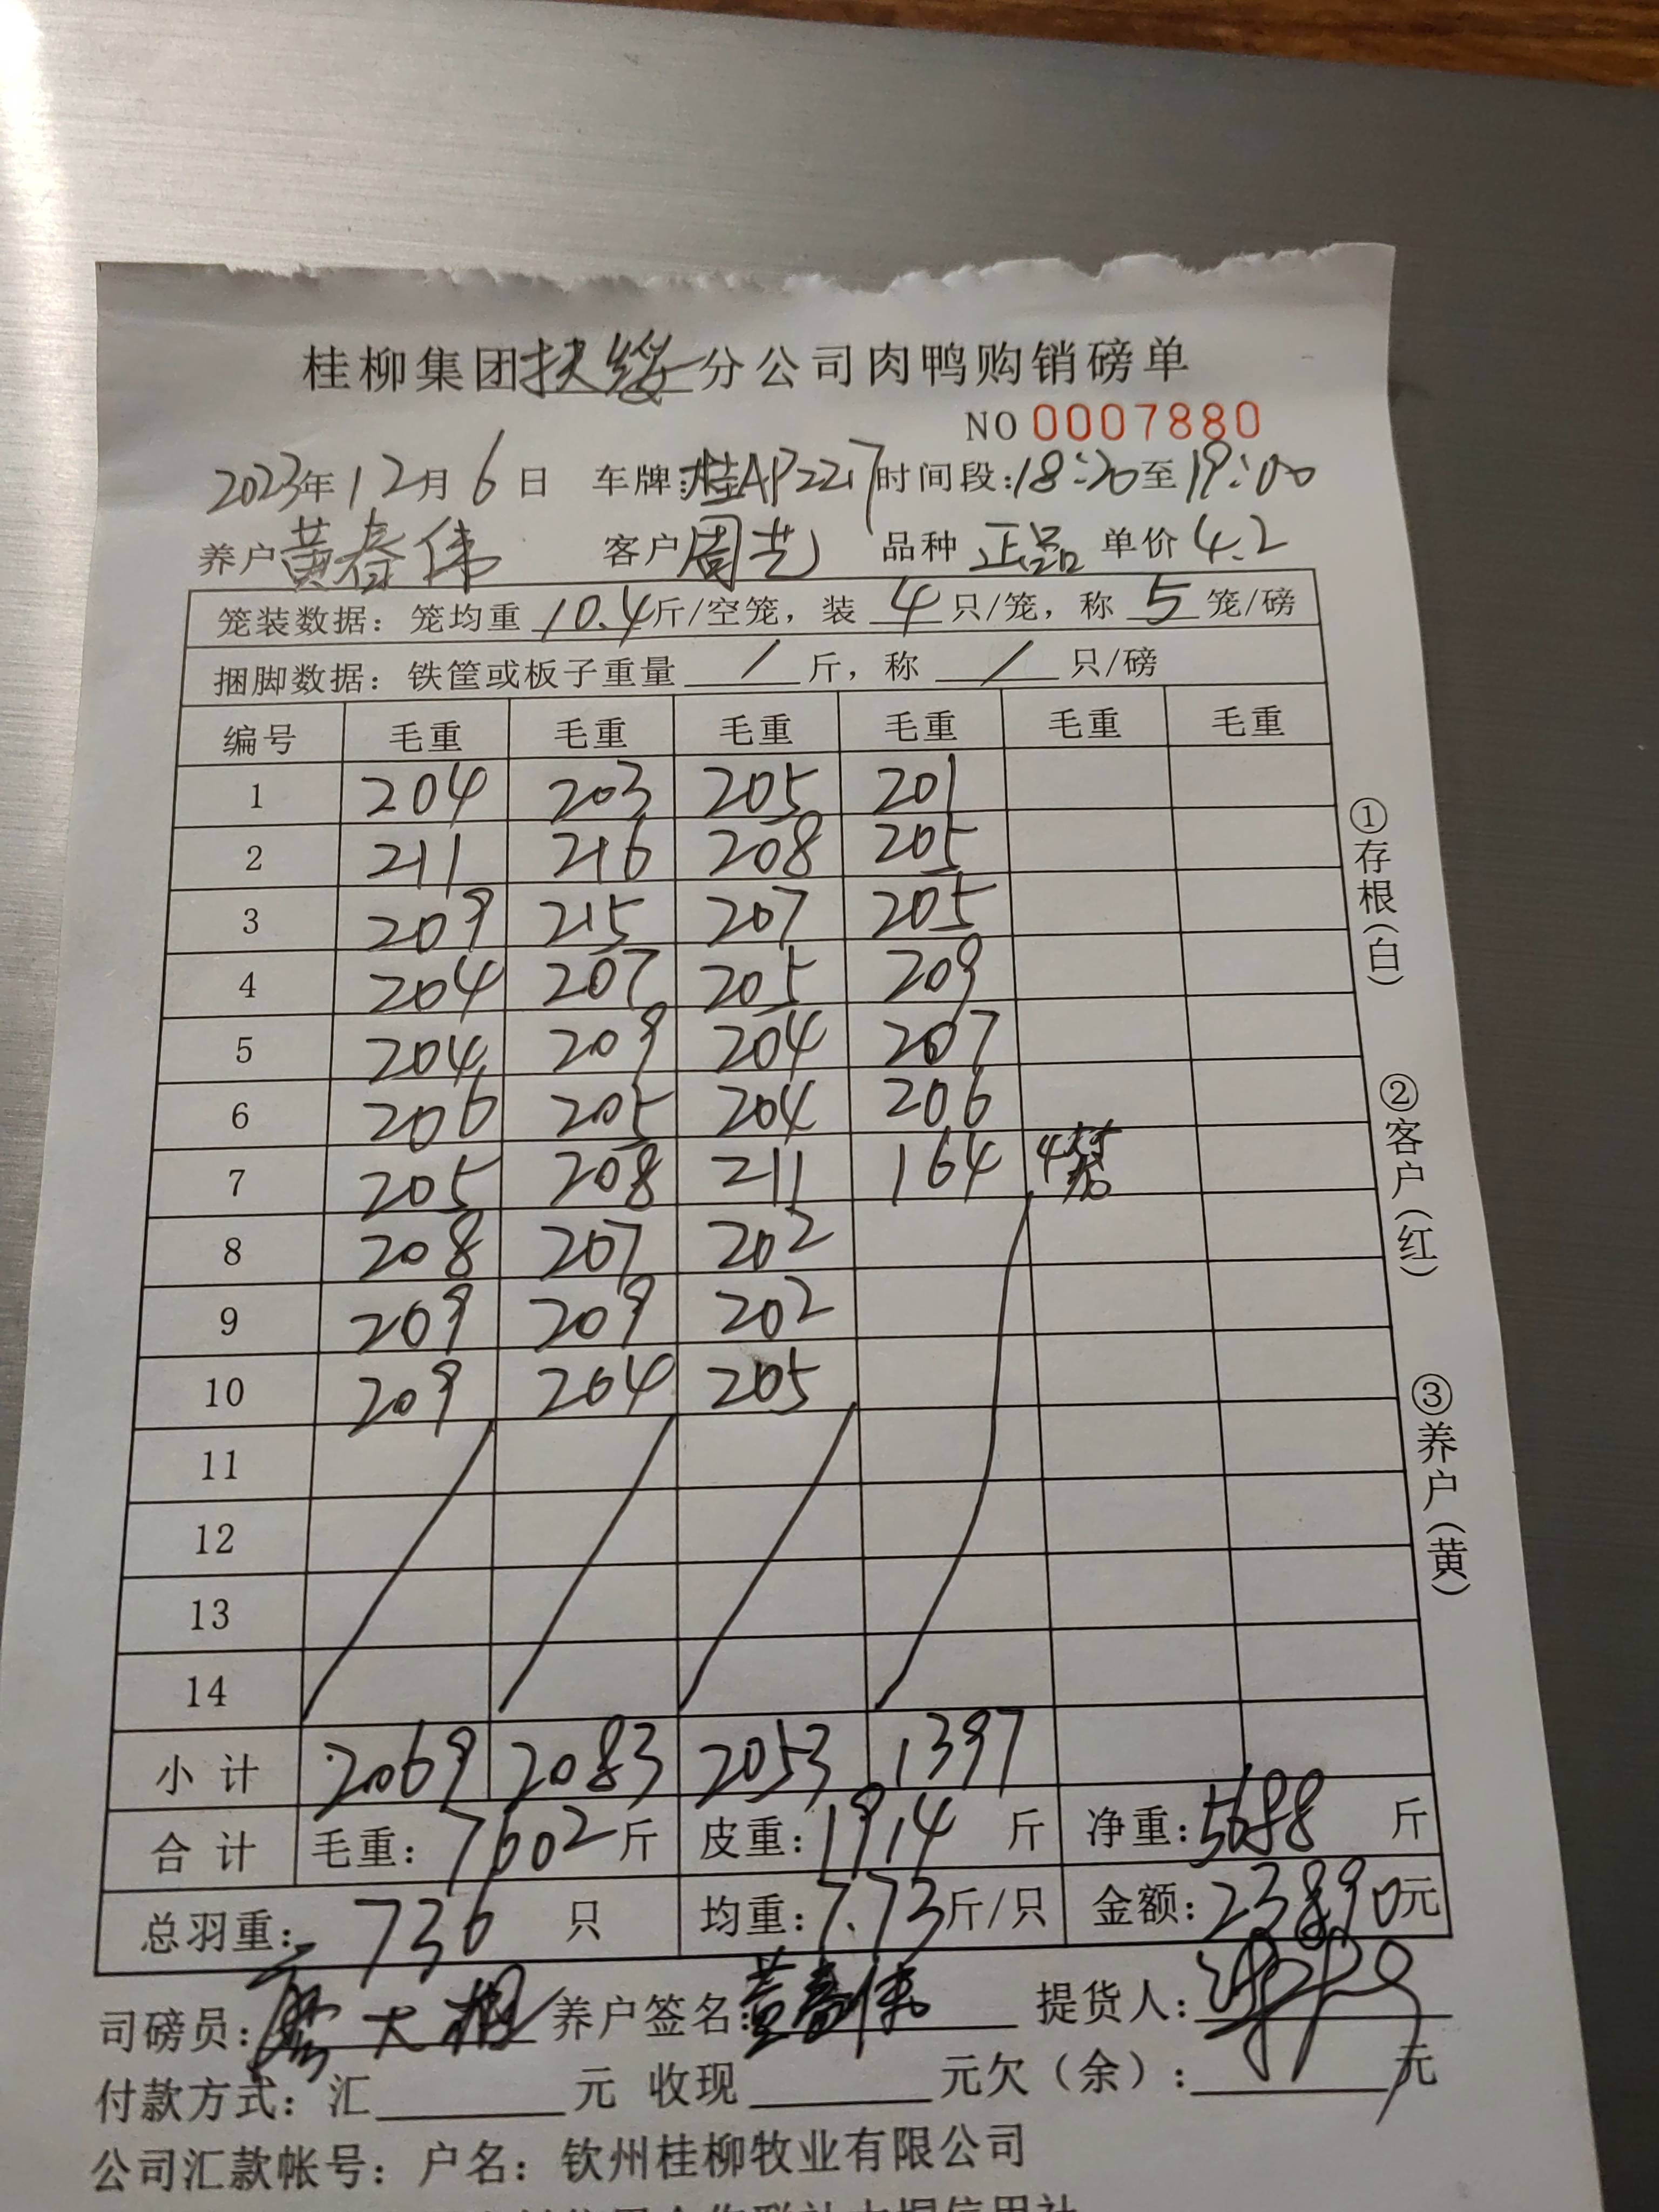 桂柳集团扶绥分公司肉鸭购销磅单
NO 0007880
2023年12月6日 车牌:桂AP2217 时间段:18:20至19:00
养户黄春伟 客户周艺 品种 正品 单价 4.2
笼装数据：笼均重 10.4 斤/空笼，装 4 只/笼，称 5 笼/磅
捆脚数据：铁筐或板子重量 / 斤，称 / 只/磅
编号 毛重 毛重 毛重 毛重 毛重 毛重
1 204 203 205 201
2 211 216 208 205
3 209 215 207 205
4 204 207 205 209
5 204 209 204 207
6 206 205 204 206
7 205 208 211 164 4笼
8 208 207 202
9 209 209 202
10 209 204 205
11
12
13
14
小计 2069 2083 2053 1397
合计 毛重：7602斤 皮重：1914斤 净重：5688斤
总羽重：736只 均重：7.73斤/只 金额：23890元
司磅员： 养户签名：黄春伟 提货人：
付款方式：汇 元 收现 元欠（余）： 元
公司汇款帐号：户名：钦州桂柳牧业有限公司
①存根（白）
②客户（红）
③养户（黄）